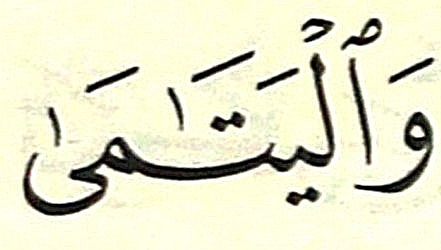 وَٱلْيَتَٰمَىٰ